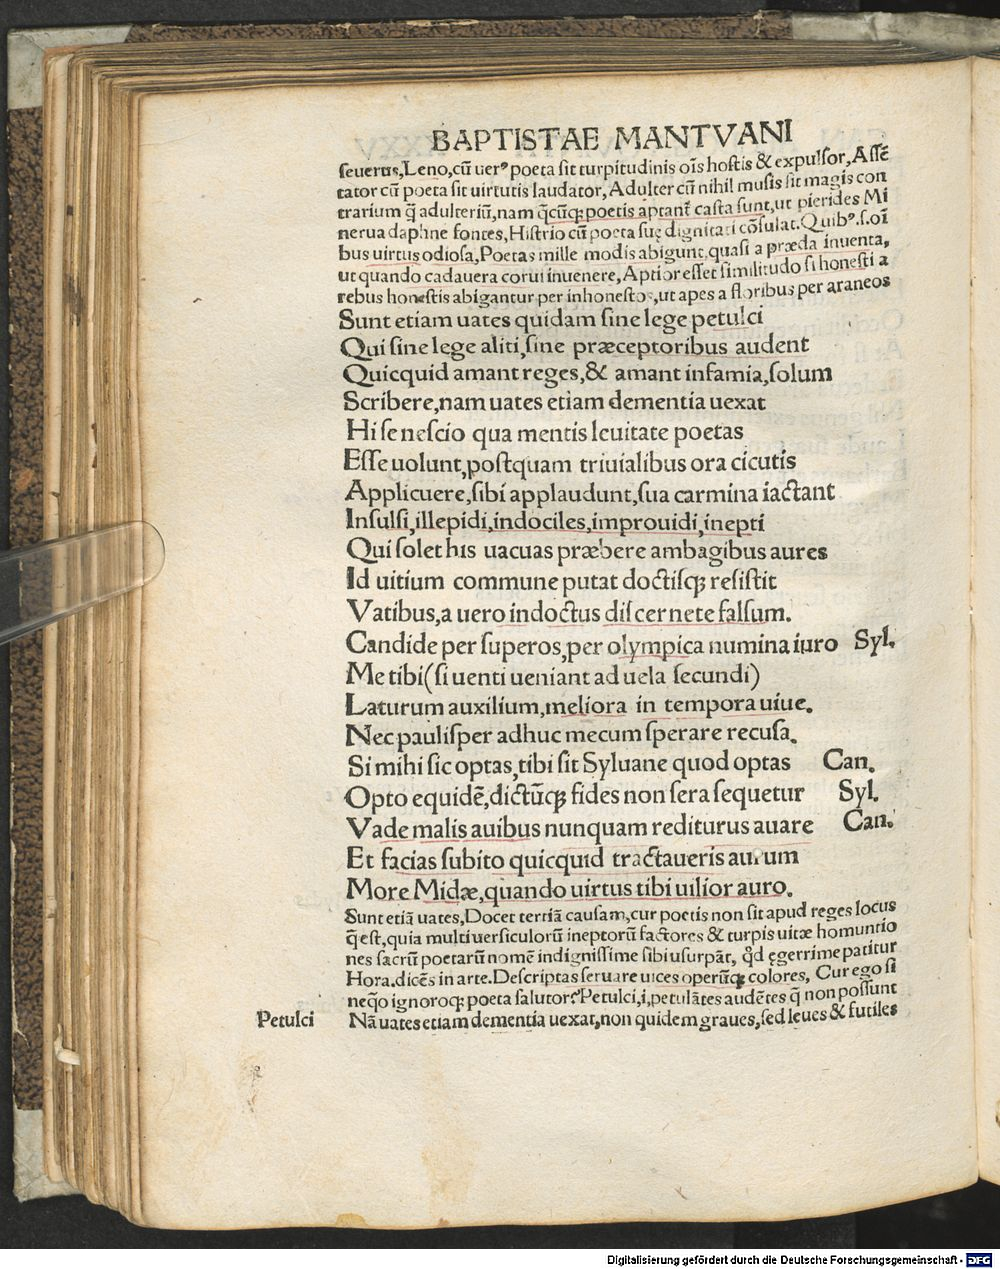 BAPTISTAE MANTVANI
seuerus,Leno,cū uerꝰ poeta sit turpitudinis oīs hostis & expulsor,Assē
tator cū poeta sit uirtutis laudator,Adulter cū nihil musis sit magis con
trarium q̄ adulteriū,nam q̄cūqꝫ poetis aptant᷑ casta sunt,ut pierides Mi
nerua daphne fontes,Histrio cū poeta suę dignitati cōsulat.Quibꝰ.s.oī
bus uirtus odiosa,Poetas mille modis abigunt,quasi a præda inuenta,
ut quando cadauera corui inuenere,Aptior esset similitudo si honesti a
rebus honestis abigantur per inhonestos,ut apes a floribus per araneos
Sunt etiam uates quidam sine lege petulci
Qui sine lege aliti,sine præceptoribus audent
Quicquid amant reges,& amant infamia,solum
Scribere,nam uates etiam dementia uexat
Hi se nescio qua mentis leuitate poetas
Esse uolunt,postquam triuialibus ora cicutis
Applicuere,sibi applaudunt,sua carmina iactant
Insulsi,illepidi,indociles,improuidi,inepti
Qui solet his uacuas præbere ambagibus aures
Id uitium commune putat doctisqꝫ resistit
Vatibus,a uero indoctus discernete falsum.
Candide per superos,per olympica numina iuro Syl.
Me tibi(si uenti ueniant ad uela secundi)
Laturum auxilium,meliora in tempora uiue.
Nec paulisper adhuc mecum sperare recusa.
Si mihi sic optas,tibi sit Syluane quod optas Can.
Opto equidē,dictūqꝫ fides non sera sequetur Syl.
Vade malis auibus nunquam rediturus auare Can.
Et facias subito quicquid tractaueris aurum
More Midæ,quando uirtus tibi uilior auro.
Sunt etiā uates,Docet tertiā causam,cur poetis non sit apud reges locus
q̄ est,quia multi uersiculorū ineptorū factores & turpis uitæ homuntio
nes sacrū poetarū nomē indignissime sibi usurpāt, qd̄ ęgerrime patitur
Hora.dicēs in arte.Descriptas seruare uices operūqꝫ colores, Cur ego si
neqͦ ignoroqꝫ poeta salutor?Petulci,i,petulātes audētes q̄ non possunt
Petulci Nā uates etiam dementia uexat,non quidem graues,sed leues & futiles
Digitalisierung gefördert durch die Deutsche Forschungsgemeinschaft - DFG